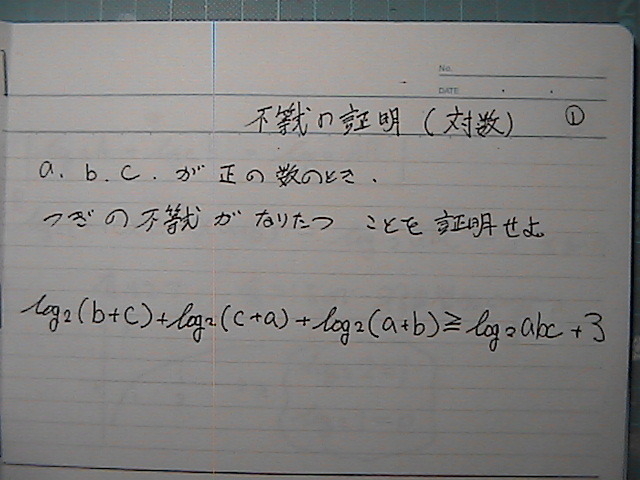 No.
DATE
不等式の証明 (対数) ①
a. b. c. が 正の数のとき.
つぎの不等式が なりたつ ことを 証明せよ。
log₂(b+c)+log₂(c+a)+log₂(a+b)≧log₂abc+3